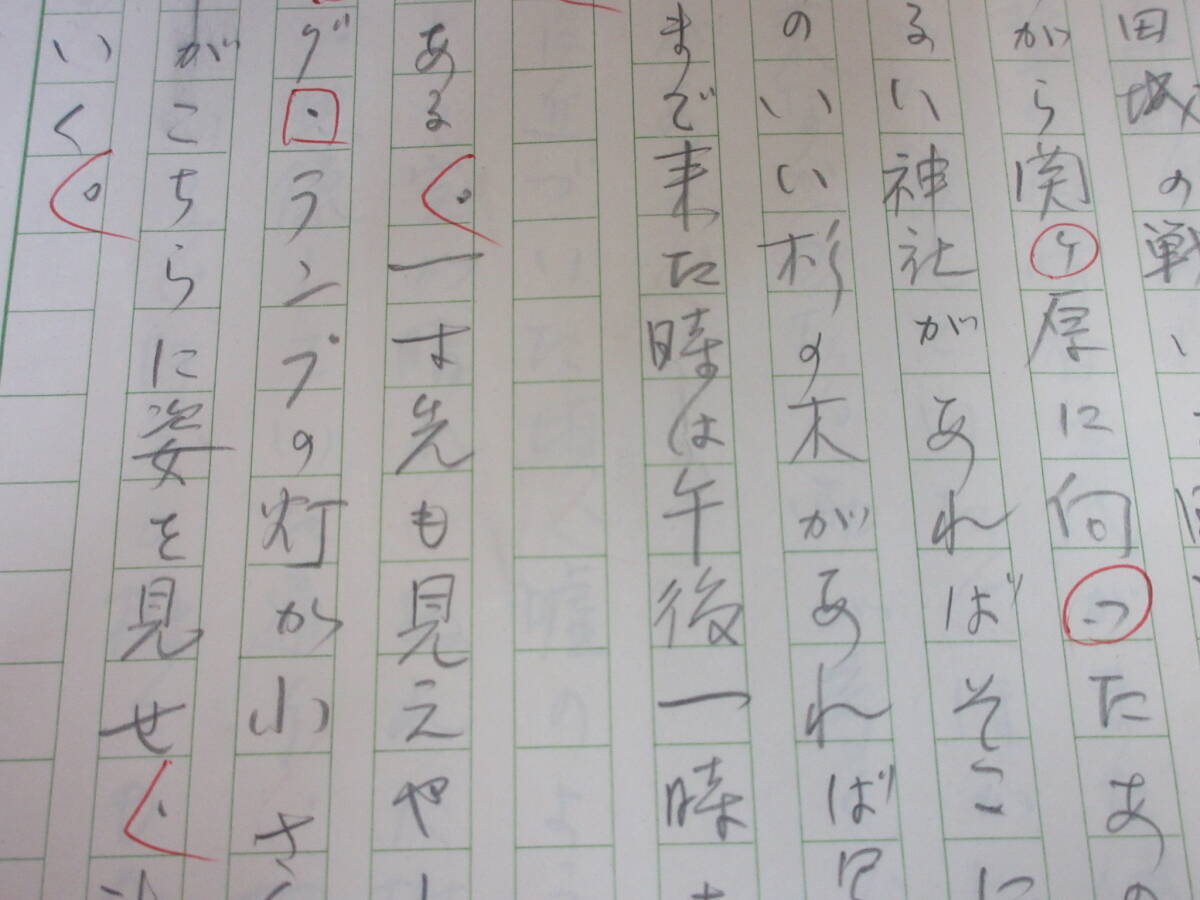 田城の戦い
から関ケ厚に向った あの
るい神社があれば そこに
のいい杉の木が あれば
まで来た時は午後一時
ある。一寸先も見えや
グ・ランプの灯が小さ
がこちらに姿を見せ、
いく。